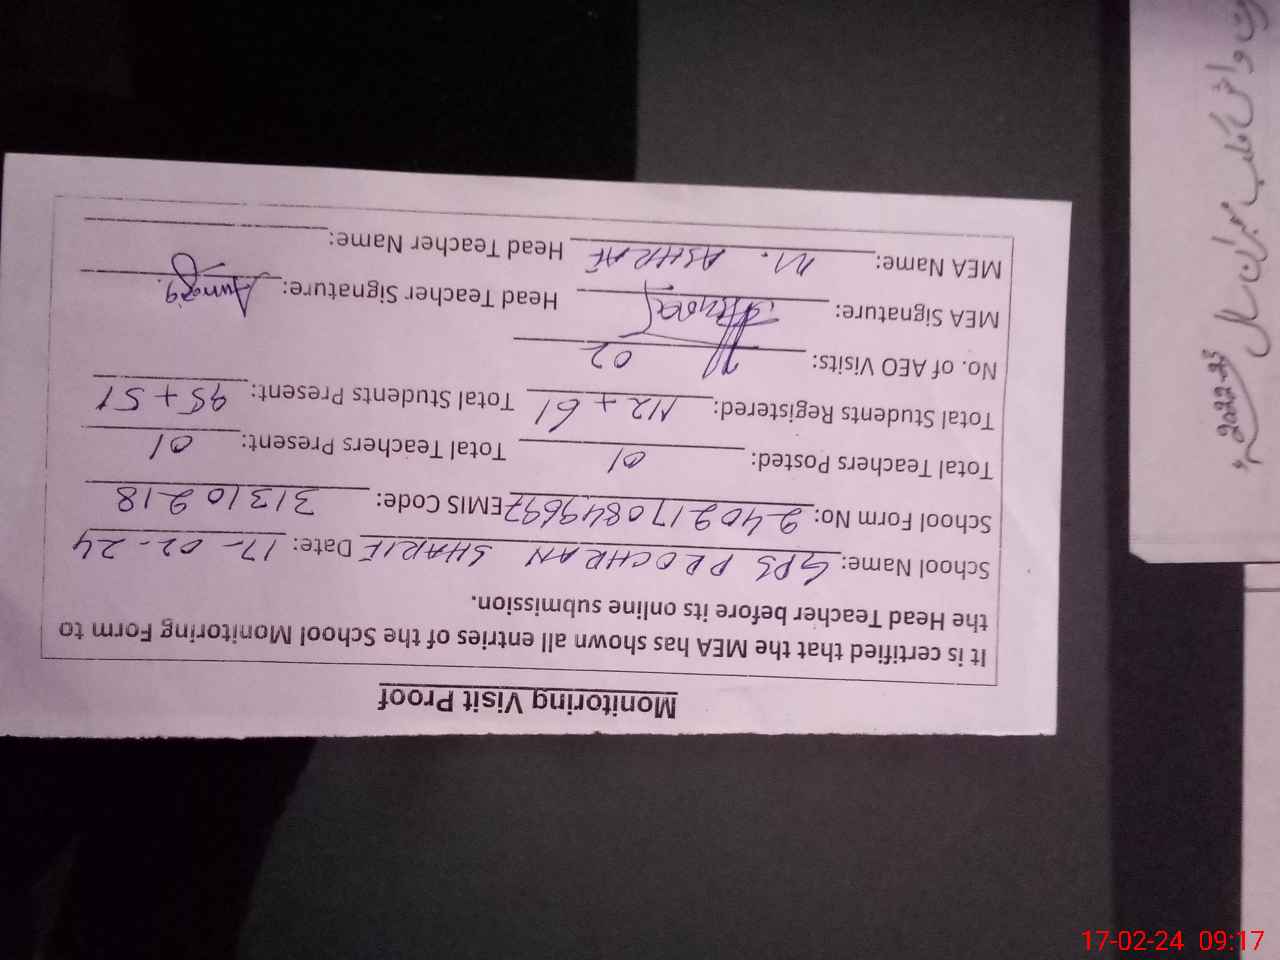 Monitoring Visit Proof
It is certified that the MEA has shown all entries of the School Monitoring Form to
the Head Teacher before its online submission.
School Name: GPS PROCHRAN SHARIF Date: 17-02-24
School Form No: 240217084969 EMIS Code: 31310218
Total Teachers Posted: 01 Total Teachers Present: 01
Total Students Registered: 112+61 Total Students Present: 95+51
No. of AEO Visits: 02
MEA Signature: Head Teacher Signature:
MEA Name: M. ASHRAF Head Teacher Name:
2022-23
17-02-24 09:17